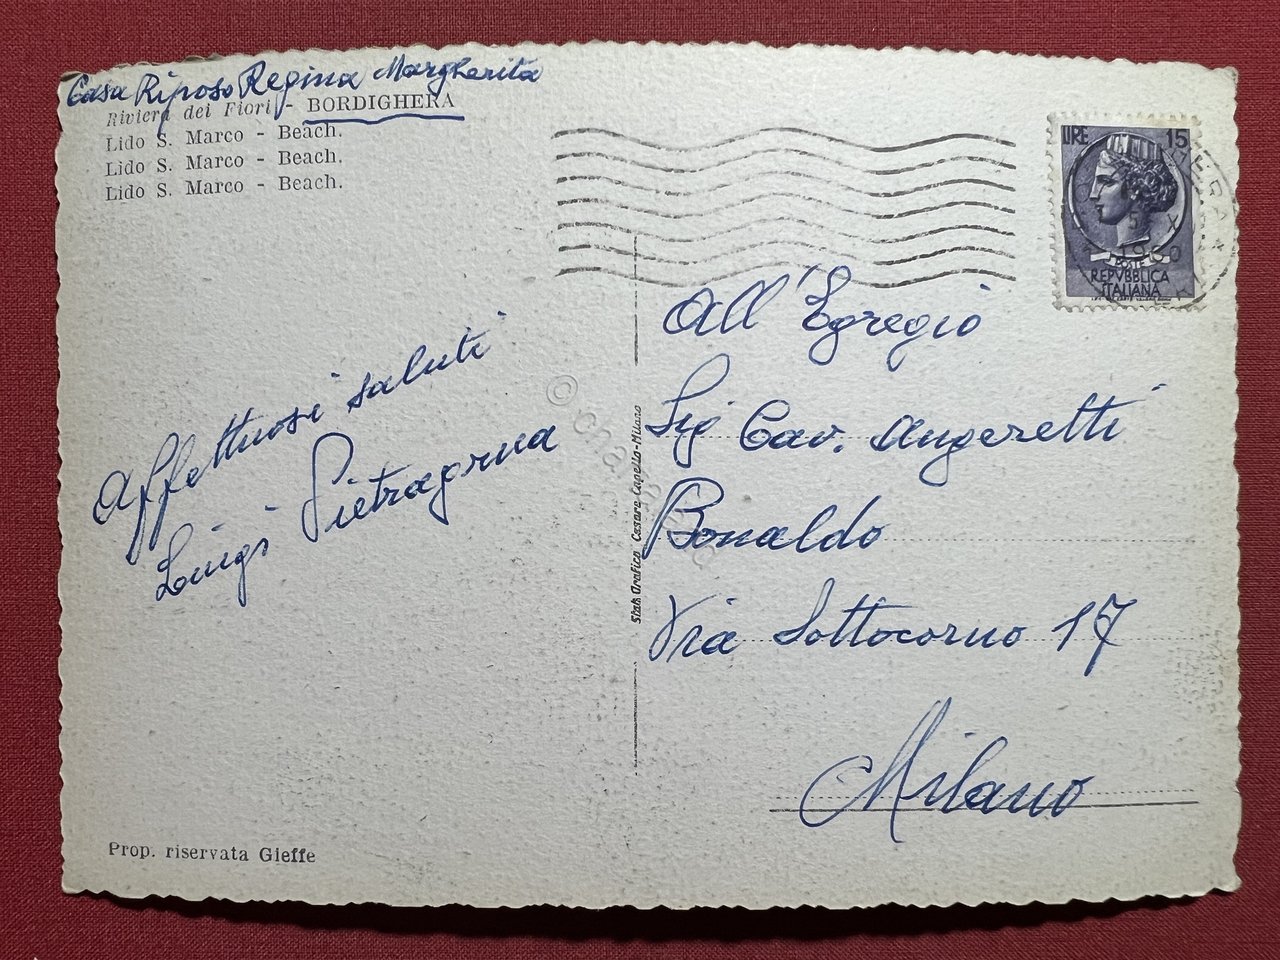 Casa Riposo Regina Margherita
Riviera dei Fiori - BORDIGHERA
Lido S. Marco - Beach.
Lido S. Marco - Beach.
Lido S. Marco - Beach.
LIRE 15
POSTE
REPVBBLICA
ITALIANA
All'Egregio
Sig Cav. Angeretti
Bonaldo
Via Sottocorno 17
Milano
Affettuosi saluti
Luigi Pietragrua
Stab. Grafico Cesare Capello-Milano
Prop. riservata Gieffe